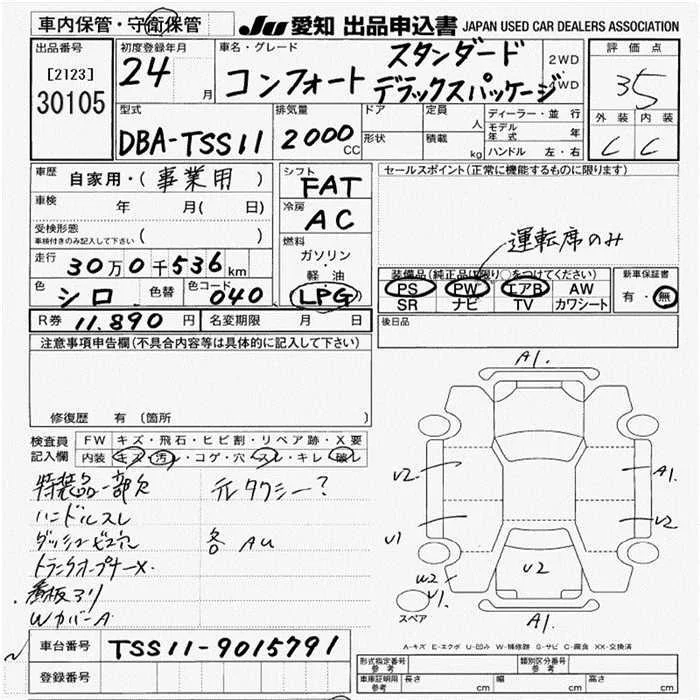 車内保管・守衛保管
JU 愛知 出品申込書 JAPAN USED CAR DEALERS ASSOCIATION
出品番号
[2123]
30105
初度登録年月
24 月
車名・グレード
スタンダード
コンフォート デラックスパッケージ
2WD
4WD
評価点
35
外装 内装
C C
型式
DBA-TSS11
排気量
2000 CC
ドア
形状
定員 人
積載 kg
ディーラー・並行
モデル年式 年
ハンドル 左・右
車歴 自家用・(事業用)
車検 年 月( 日)
受検形態
車検付きのみ記入して下さい ( )
走行 30万0千536km
色 シロ 色替 色コード 040
R券 11.890 円 名変期限 月 日
シフト
FAT
冷房
AC
燃料
ガソリン
軽・油
LPG
セールスポイント(正常に機能するものに限ります)
運転席のみ
装備品(純正品に限り○をつけてください)
PS PW エアB AW
SR ナビ TV カワシート
新車保証書
有・無
後日品
注意事項申告欄(不具合内容等は具体的に記入して下さい)
修復歴 有 (箇所 )
検査員記入欄
FW キズ・飛石・ヒビ割・リペア跡・X要
内装 キズ・汚レ・コゲ・穴・スレ・キレ・破レ
特装品一部欠 元タクシー?
ハンドルスレ
ダッシュビス穴 各 AU
トランクオープナーX.
看板アリ
WカバーA
A1.
U2.
A1.
U1
U2
U2
W2
U1.
スペア
A1.
A-キズ E-エクボ U-凹み W-補修跡 S-サビ C-腐食 XX-交換済
車台番号 TSS11-9015791
登録番号
形式指定番号 参考
類別区分番号 参考
車庫証明用 参考 長さ cm 幅 cm 高さ cm